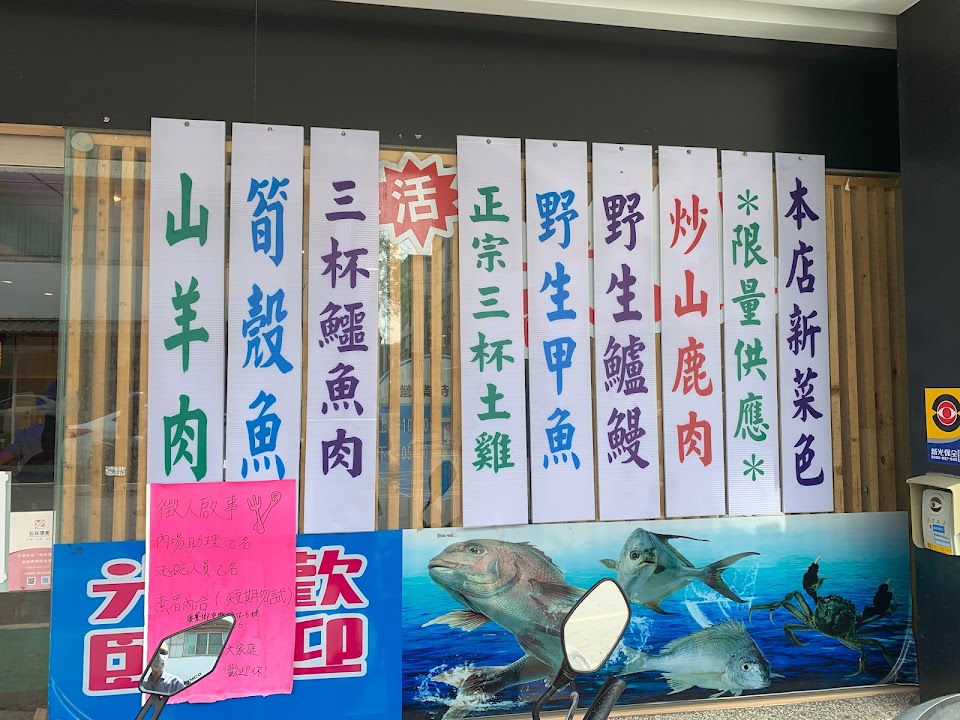 本店新菜色
*限量供應*
炒山鹿肉
野生鱸鰻
野生甲魚
正宗三杯土雞
活
三杯鱷魚肉
筍殼魚
山羊肉
徵人啟事
內場助理 乙名
洗碗人員 乙名
意者內洽 (短期勿試)
大家庭
歡迎你!
歡
迎
營業時
新光保全